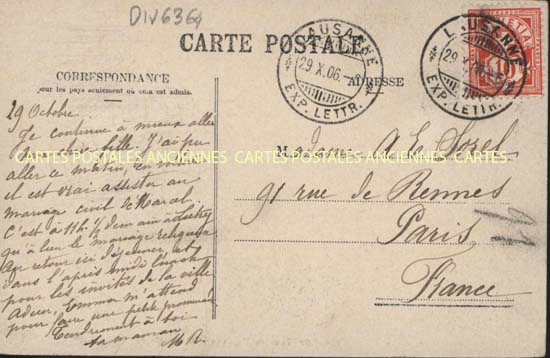 DIV636g
CARTE POSTALE
CORRESPONDANCE
pour les pays seulement où cela est admis.
ADRESSE
LAUSANNE
29 X.06.
EXP. LETTR.
LAUSANNE
29 X.06.
EXP. LETTR.
HELVETIA
10
CARTES POSTALES ANCIENNES CARTES POSTALES ANCIENNES CARTES POSTALES ANCIENNES
29 Octobre
Je continue à mieux aller
ma chère fille. J'ai pu
aller ce matin, en
il est vrai assister au
mariage civil de Marcel
C'est à 11h 1/2 demain
qu'a lieu le mariage religieux
Au retour ici déjeuner, et
dans l'après midi lunch
pour les invités de la ville
Adieu, Emma m'attend
pour faire une petite promenade
Tendrement à toi
ta maman
M R.
Madame A. E. Sorel
91 rue de Rennes
Paris
France
91